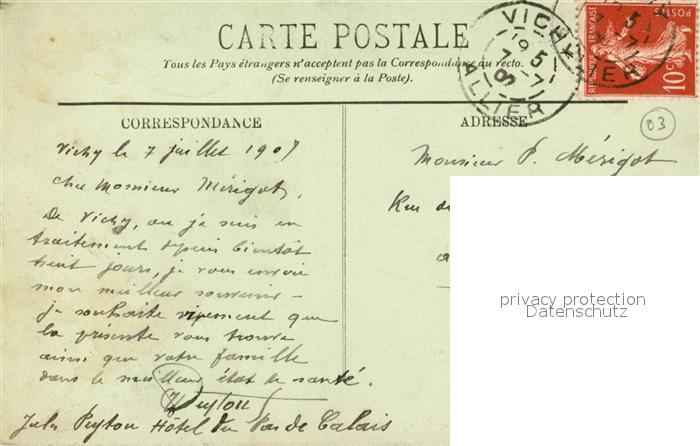 CARTE POSTALE
Tous les Pays étrangers n'acceptent pas la Correspondance au recto.
(Se renseigner à la Poste).
VICHY
ALLIER
RÉPUBLIQUE FRANÇAISE
POSTES
10c
03
CORRESPONDANCE
Vichy le 7 juillet 190
cher Monsieur Mérigot,
De Vichy, où je suis en
traitement depuis bientôt
huit jours, je vous envoie
mon meilleur souvenir –
je souhaite vivement que
la présente vous trouve
ainsi que votre famille
dans le meilleur état de santé.
JPeytou
Jules Peytou Hôtel du Pas de Calais
ADRESSE
Monsieur P. Mérigot
Rue de
a
privacy protection
Datenschutz